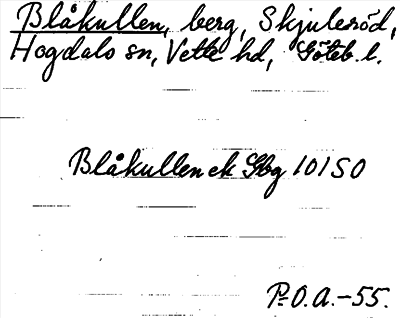 Blåkullen, berg, Skjulesröd,
Hogdals sn, Vette hd, Göteb. l.
Blåkullen ek Gbg 101 SO
P-O.A.-55.